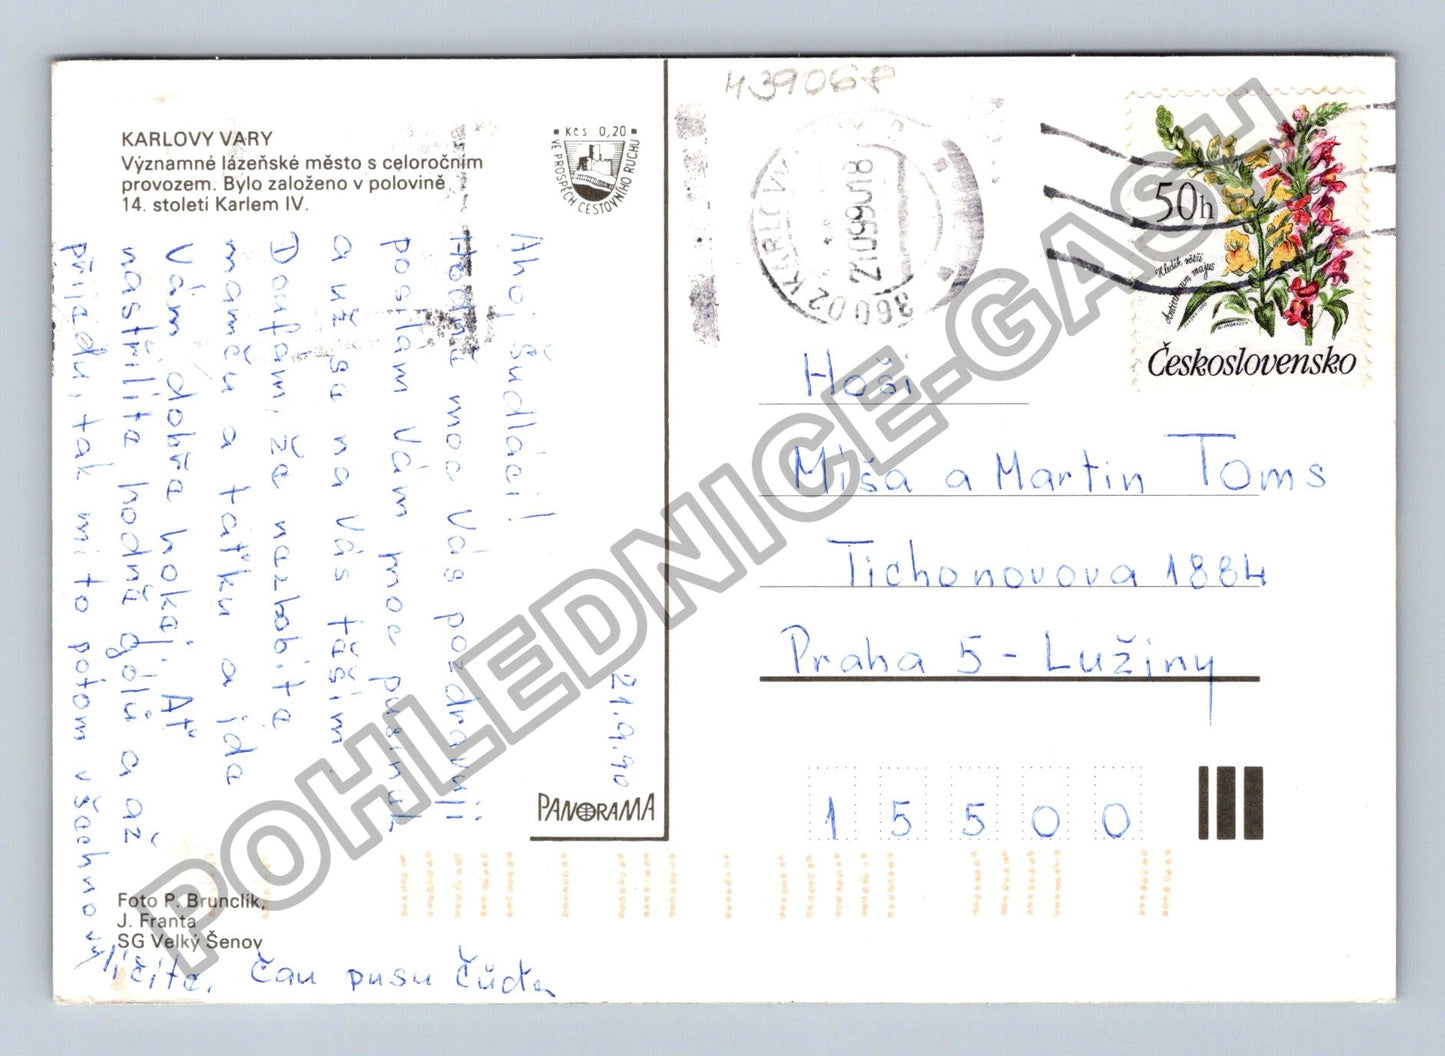 KARLOVY VARY
Významné lázeňské město s celoročním
provozem. Bylo založeno v polovině
14. století Karlem IV.
Kčs 0,20
VE PROSPĚCH CESTOVNÍHO RUCHU
21.9.90
Ahoj Šudláci!
Hodně moc Vás pozdravuji
posílám Vám moc pusinek
a už se na Vás těším
Doufám, že nezlobíte
mamču a taťku a jde
Vám dobře hokej. Ať
nastřílíte hodně gólů a až
přijedu, tak mi to potom všechno vy
líčíte. Čau pusu
PANORAMA
Foto P. Brunclík,
J. Franta
SG Velký Šenov
439068
36002 KARLOVY VARY
21.09.90.18
50h
Hledík větší
Antirrhinum majus
Československo
Hoši
Míša a Martin Toms
Tichonovova 1884
Praha 5 - Lužiny
1 5 5 0 0
POHLEDNICE-GASH